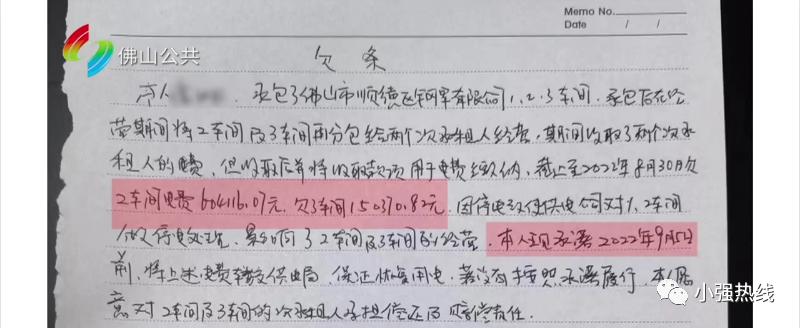 Memo No.
Date / /
佛山公共
欠条
本人 承包了佛山市顺德 有限公司1、2、3车间,承包后在经
营期间将2车间及3车间再分包给两个次承租人经营,期间收取了两个次承
租人的电费,但收取后并将收取款项用于电费缴纳,截止至2022年8月30月欠
2车间电费60416.07元,欠3车间15031.82元,因停电致使供电公司对1、2车间
做停电处理,影响了2车间及3车间的经营,本人现承诺2022年9月5日
前,将上述电费等数供电局,保证恢复用电,若没有按照承诺履行,本人愿
意对2车间及3车间的次承租人承担偿还及赔偿责任.
小强热线